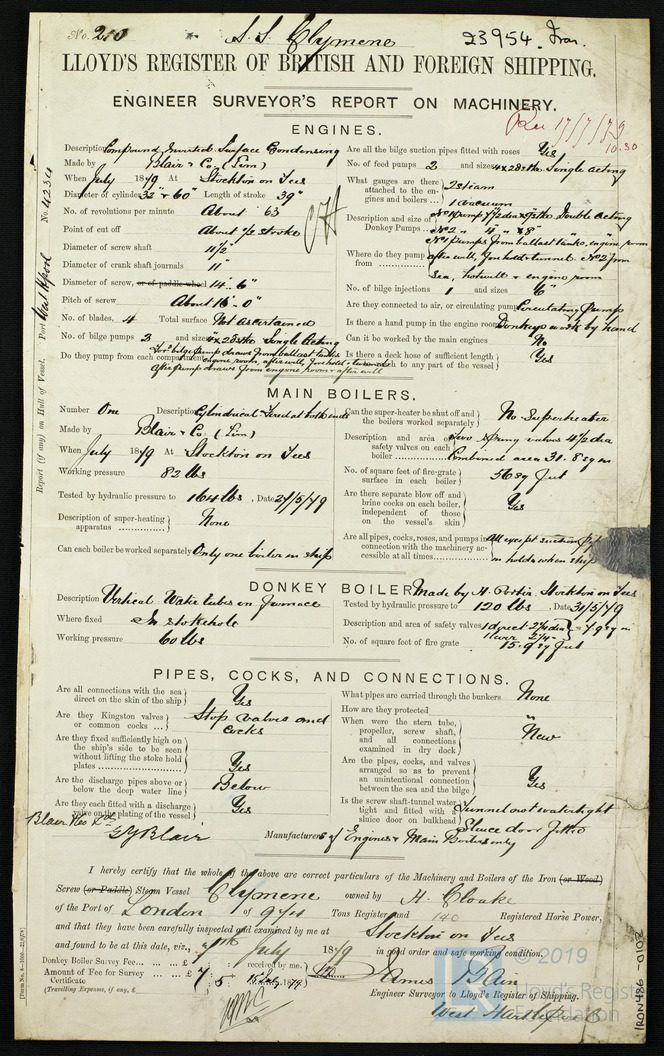 No. 210 S.S. Clymene 23954 Iron.
LLOYD'S REGISTER OF BRITISH AND FOREIGN SHIPPING.
ENGINEER SURVEYOR'S REPORT ON MACHINERY.
Rec 17/7/79
10.30
ENGINES.
Description Compound Inverted Surface Condensing
Made by Blair & Co: (Lim)
When July 1879 At Stockton on Tees
Diameter of cylinder 32" & 60" Length of stroke 39"
No. of revolutions per minute About 63
Point of cut off About 1/2 stroke
Diameter of screw shaft 11 1/2"
Diameter of crank shaft journals 11"
Diameter of screw, or of paddle-wheel 14'. 6"
Pitch of screw About 16'-0"
No. of blades, 4 Total surface Not ascertained
No. of bilge pumps 2 and sizes 4 x 28 stke Single Acting
Do they pump from each compartment For bilge pump draws from ballast tanks
engine room, after well, forehold & tunnel
aft pump draws from engine room & after well
Are all the bilge suction pipes fitted with roses Yes
No. of feed pumps 2 and sizes 4 x 28 stke. Single Acting
What gauges are there attached to the engines and boilers 2 steam
1 vacuum
Description and size of Donkey Pumps No 1 pump 7 1/2 dia x 9 stke Double Acting
No 2 " 4" x 8"
Where do they pump from No 1 pumps from ballast tanks, engine room
after well, forehold & tunnel. No 2 from
sea, hotwell & engine room
No. of bilge injections 1 and sizes 6"
Are they connected to air, or circulating pump Circulating Pump
Is there a hand pump in the engine room Donkeys work by hand
Can it be worked by the main engines No
Is there a deck hose of sufficient length to reach to any part of the vessel Yes
Report (if any) on Hull of Vessel. Port West Hpool No. 4234
MAIN BOILERS.
Number One Description Cylindrical. Fired at both ends
Made by Blair & Co: (Lim)
When July 1879 At Stockton on Tees
Working pressure 82 lbs
Tested by hydraulic pressure to 164 lbs, Date 27/5/79
Description of super-heating apparatus None
Can each boiler be worked separately Only one boiler in ship
Can the superheater be shut off and the boilers worked separately No Superheater
Description and area of safety valves on each boiler Two spring valves 4 1/2 dia
Combined area 31.8 sq in
No. of square feet of fire-grate surface in each boiler 56 sq feet
Are there separate blow off and brine cocks on each boiler, independent of those on the vessel's skin Yes
Are all pipes, cocks, roses, and pumps in connection with the machinery accessible at all times All except suction
in holds when ship
DONKEY BOILER Made by H. Porter, Stockton on Tees
Description Vertical Water tubes in furnace
Where fixed In stokehole
Working pressure 60 lbs
Tested by hydraulic pressure to 120 lbs, Date 31/5/79
Description and area of safety valves 1 direct
1 lever
No. of square feet of fire grate 15.9 sq feet
PIPES, COCKS, AND CONNECTIONS.
Are all connections with the sea direct on the skin of the ship Yes
Are they Kingston valves or common cocks Stop valves and
cocks
Are they fixed sufficiently high on the ship's side to be seen without lifting the stoke hold plates Yes
Are the discharge pipes above or below the deep water line Below
Are they each fitted with a discharge valve on the plating of the vessel Yes
What pipes are carried through the bunkers None
How are they protected "
When were the stern tube, propeller, screw shaft, and all connections examined in dry dock New
Are the pipes, cocks, and valves arranged so as to prevent an unintentional connection between the sea and the bilge Yes
Is the screw shaft-tunnel water tight and fitted with a sluice door on bulkhead Tunnel not watertight
Sluice door fitted
G Y Blair Manufacturers of Engines & Main Boilers only
I hereby certify that the whole of the above are correct particulars of the Machinery and Boilers of the Iron (or Wood)
Screw (or Paddle) Steam Vessel Clymene owned by H. Cloake
of the Port of London of 974 Tons Register and 140 Registered Horse Power,
and that they have been carefully inspected and examined by me at Stockton on Tees
and found to be at this date, viz., July 1879 in good order and safe working condition.
Donkey Boiler Survey Fee £
Amount of Fee for Survey £ 7 : 5 received by me.
Certificate
(Travelling Expenses, if any, £
James Bain
Engineer Surveyor to Lloyd's Register of Shipping.
West Hartlepool
© 2019
Lloyd's Register
Foundation
IRON486-0102